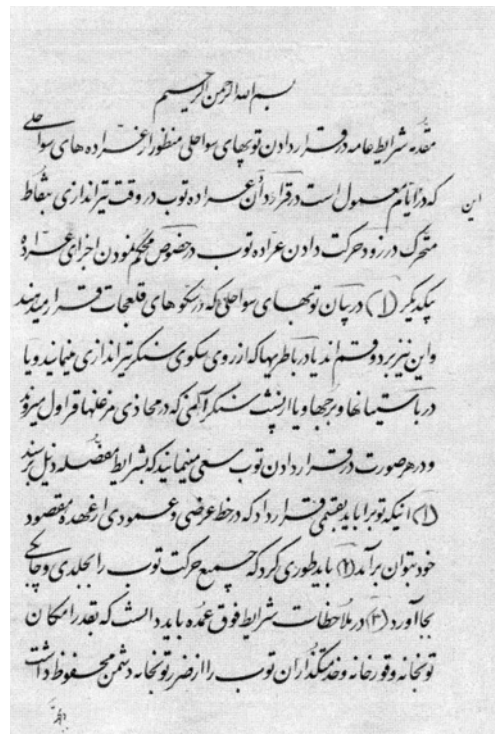 بسم الله الرحمن الرحیم
مقدمه شرایط عامه در قرار دادن توپهای سواحلی منظور از عراده های سواحلی
که در این ایام معمول است در قرار دادن عراده توپ در وقت تیراندازی بنقاط
متحرک در زود حرکت دادن عراده توپ در خصوص محکم نمودن اجزای عراده
بیکدیگر (۱) در بیان توپهای سواحلی که در سکوهای قلعجات قرار میدهند
و این نیز بر دو قسم اند یا در باطریها که از روی سکوی سنگر تیراندازی مینمایند و یا
در باستیانها و برجها و یا از پشت سنگر آهنی که در محاذی مزغلها قراول میروند
و در هر صورت در قرار دادن توپ سعی مینمایند که بشرایط مفصله ذیل برسند
(۱) اینکه توپ را باید بقسمی قرار داد که در خط عرضی و عمودی از عهده مقصود
خود بتوان برآمد (۲) باید طوری کرد که جمیع حرکت توپ را بجلدی و چابکی
بجا آورد (۳) در ملاحظات شرایط فوق عمده باید دانست که بقدر امکان
توپخانه و قورخانه و خدمتگذاران توپ را از ضرر توپخانه دشمن محفوظ داشت